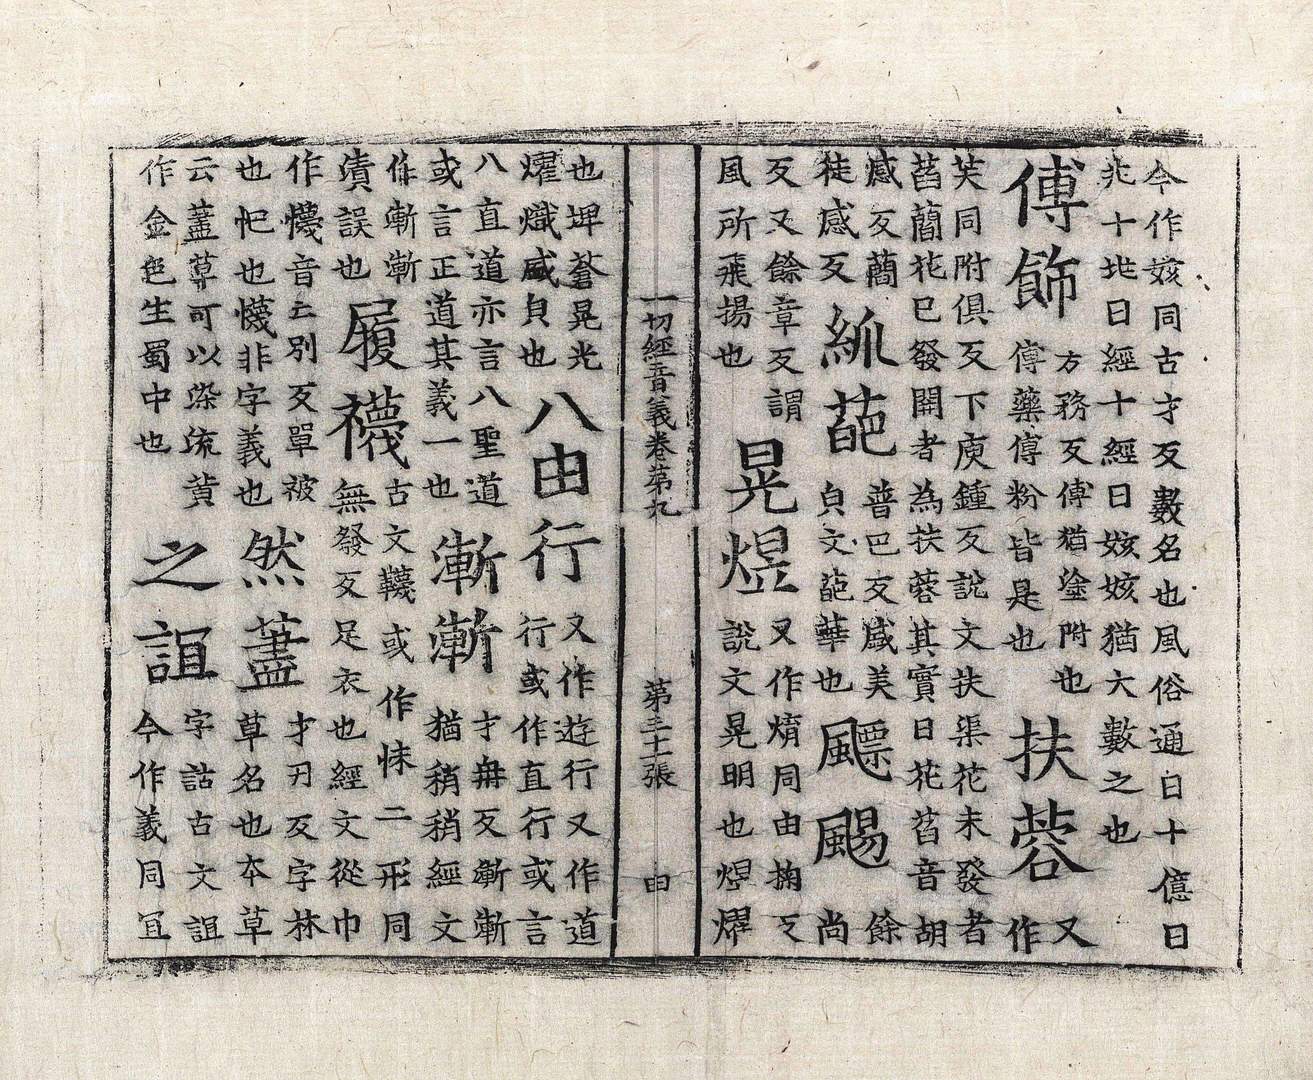 今作姟同古才反數名也風俗通曰十億曰
兆十兆曰經十經曰姟姟猶大數之也
傅飾
方務反傅猶塗附也
傅藥傅粉皆是也
扶蓉
又
作
芙同附俱反下庾鍾反說文扶渠花未發者
菡䕞花已發開者為扶蓉其實曰花菡音胡
感反䕞
徒感反
𦀟葩
普巴反盛美
㒵文葩華也
飄颺
餘
尚
反又餘章反謂
風所飛揚也
晃煜
又作焴同由掬反
說文晃明也煜燿
一切經音義卷第九 第三十張 由
也埤蒼晃光
燿熾盛㒵也
八由行
又作遊行又作道
行或作直行或言
八直道亦言八聖道
或言正道其義一也
漸漸
才冉反漸漸
猶稍稍經文
作漸漸
漬誤也
履襪
古文韤或作㡒二形同
無發反足衣也經文從巾
作幭音亡別反單被
也帊也幭非字義也
然藎
才刃反字林
草名也本草
云藎草可以染流黃
作金色生蜀中也
之誼
字詁古文誼
今作義同宜